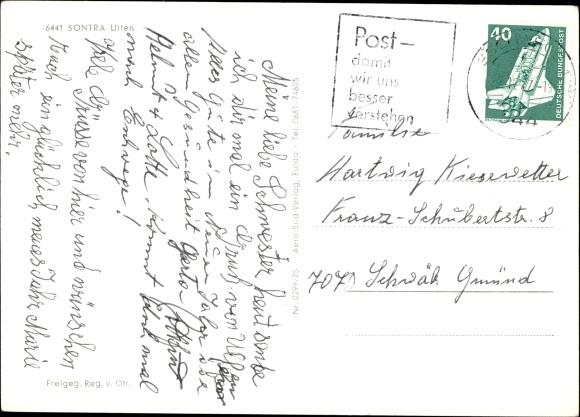 6441 SONTRA Ulfen
Meine liebe Schwester heut sende
ich dir mal ein Gruß von Ulfen
Alles Gute im Neuen Jahr vor
allem Gesundheit Gerta
Helmut + Lotte. Kommt doch mal
nach Eschwege!
Viele Grüsse von hier und wünschen
Euch ein glücklich neues Jahr Marie
später mehr.
Freigeg. Reg. v. Ofr.
Nr. 0299/25 Aero-Bild-Verlag, Fulda · Tel. 0661-74605
Post–
damit
wir uns
besser
verstehen
40
DEUTSCHE BUNDESPOST
Familie
Hartwig Kiesewetter
Franz-Schubertstr. 8
7071 Schwäb Gmünd